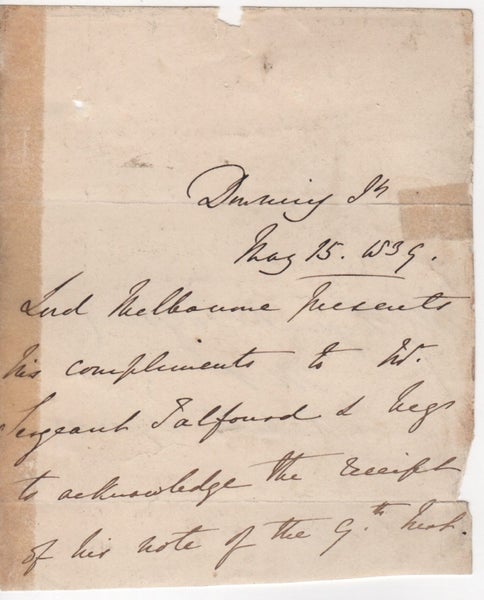 Downing St
May 15. 1839.
Lord Melbourne Presents
his compliments to Mr.
Sergeant Talfourd & begs
to acknowledge the receipt
of his note of the 9.th Inst.